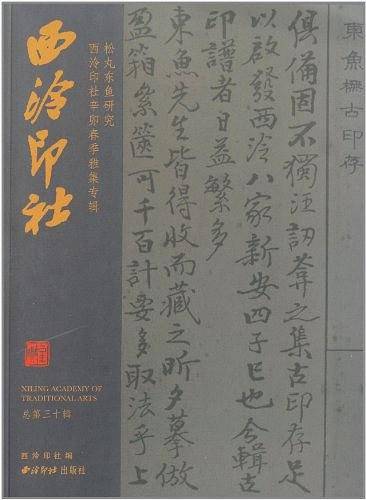 西泠印社
松丸东鱼研究
西泠印社辛卯春季雅集专辑
XILING ACADEMY OF
TRADITIONAL ARTS
总第三十辑
西泠印社编
西泠印社出版社
東魚橅古印存
俱備固不獨汪訒葊之集古印存足
以啟發西泠八家新安四子已也今輯古
印譜者日益繁多
東魚先生皆得收而藏之昕夕摹倣
盈箱絫箧可千百計要多取法乎上